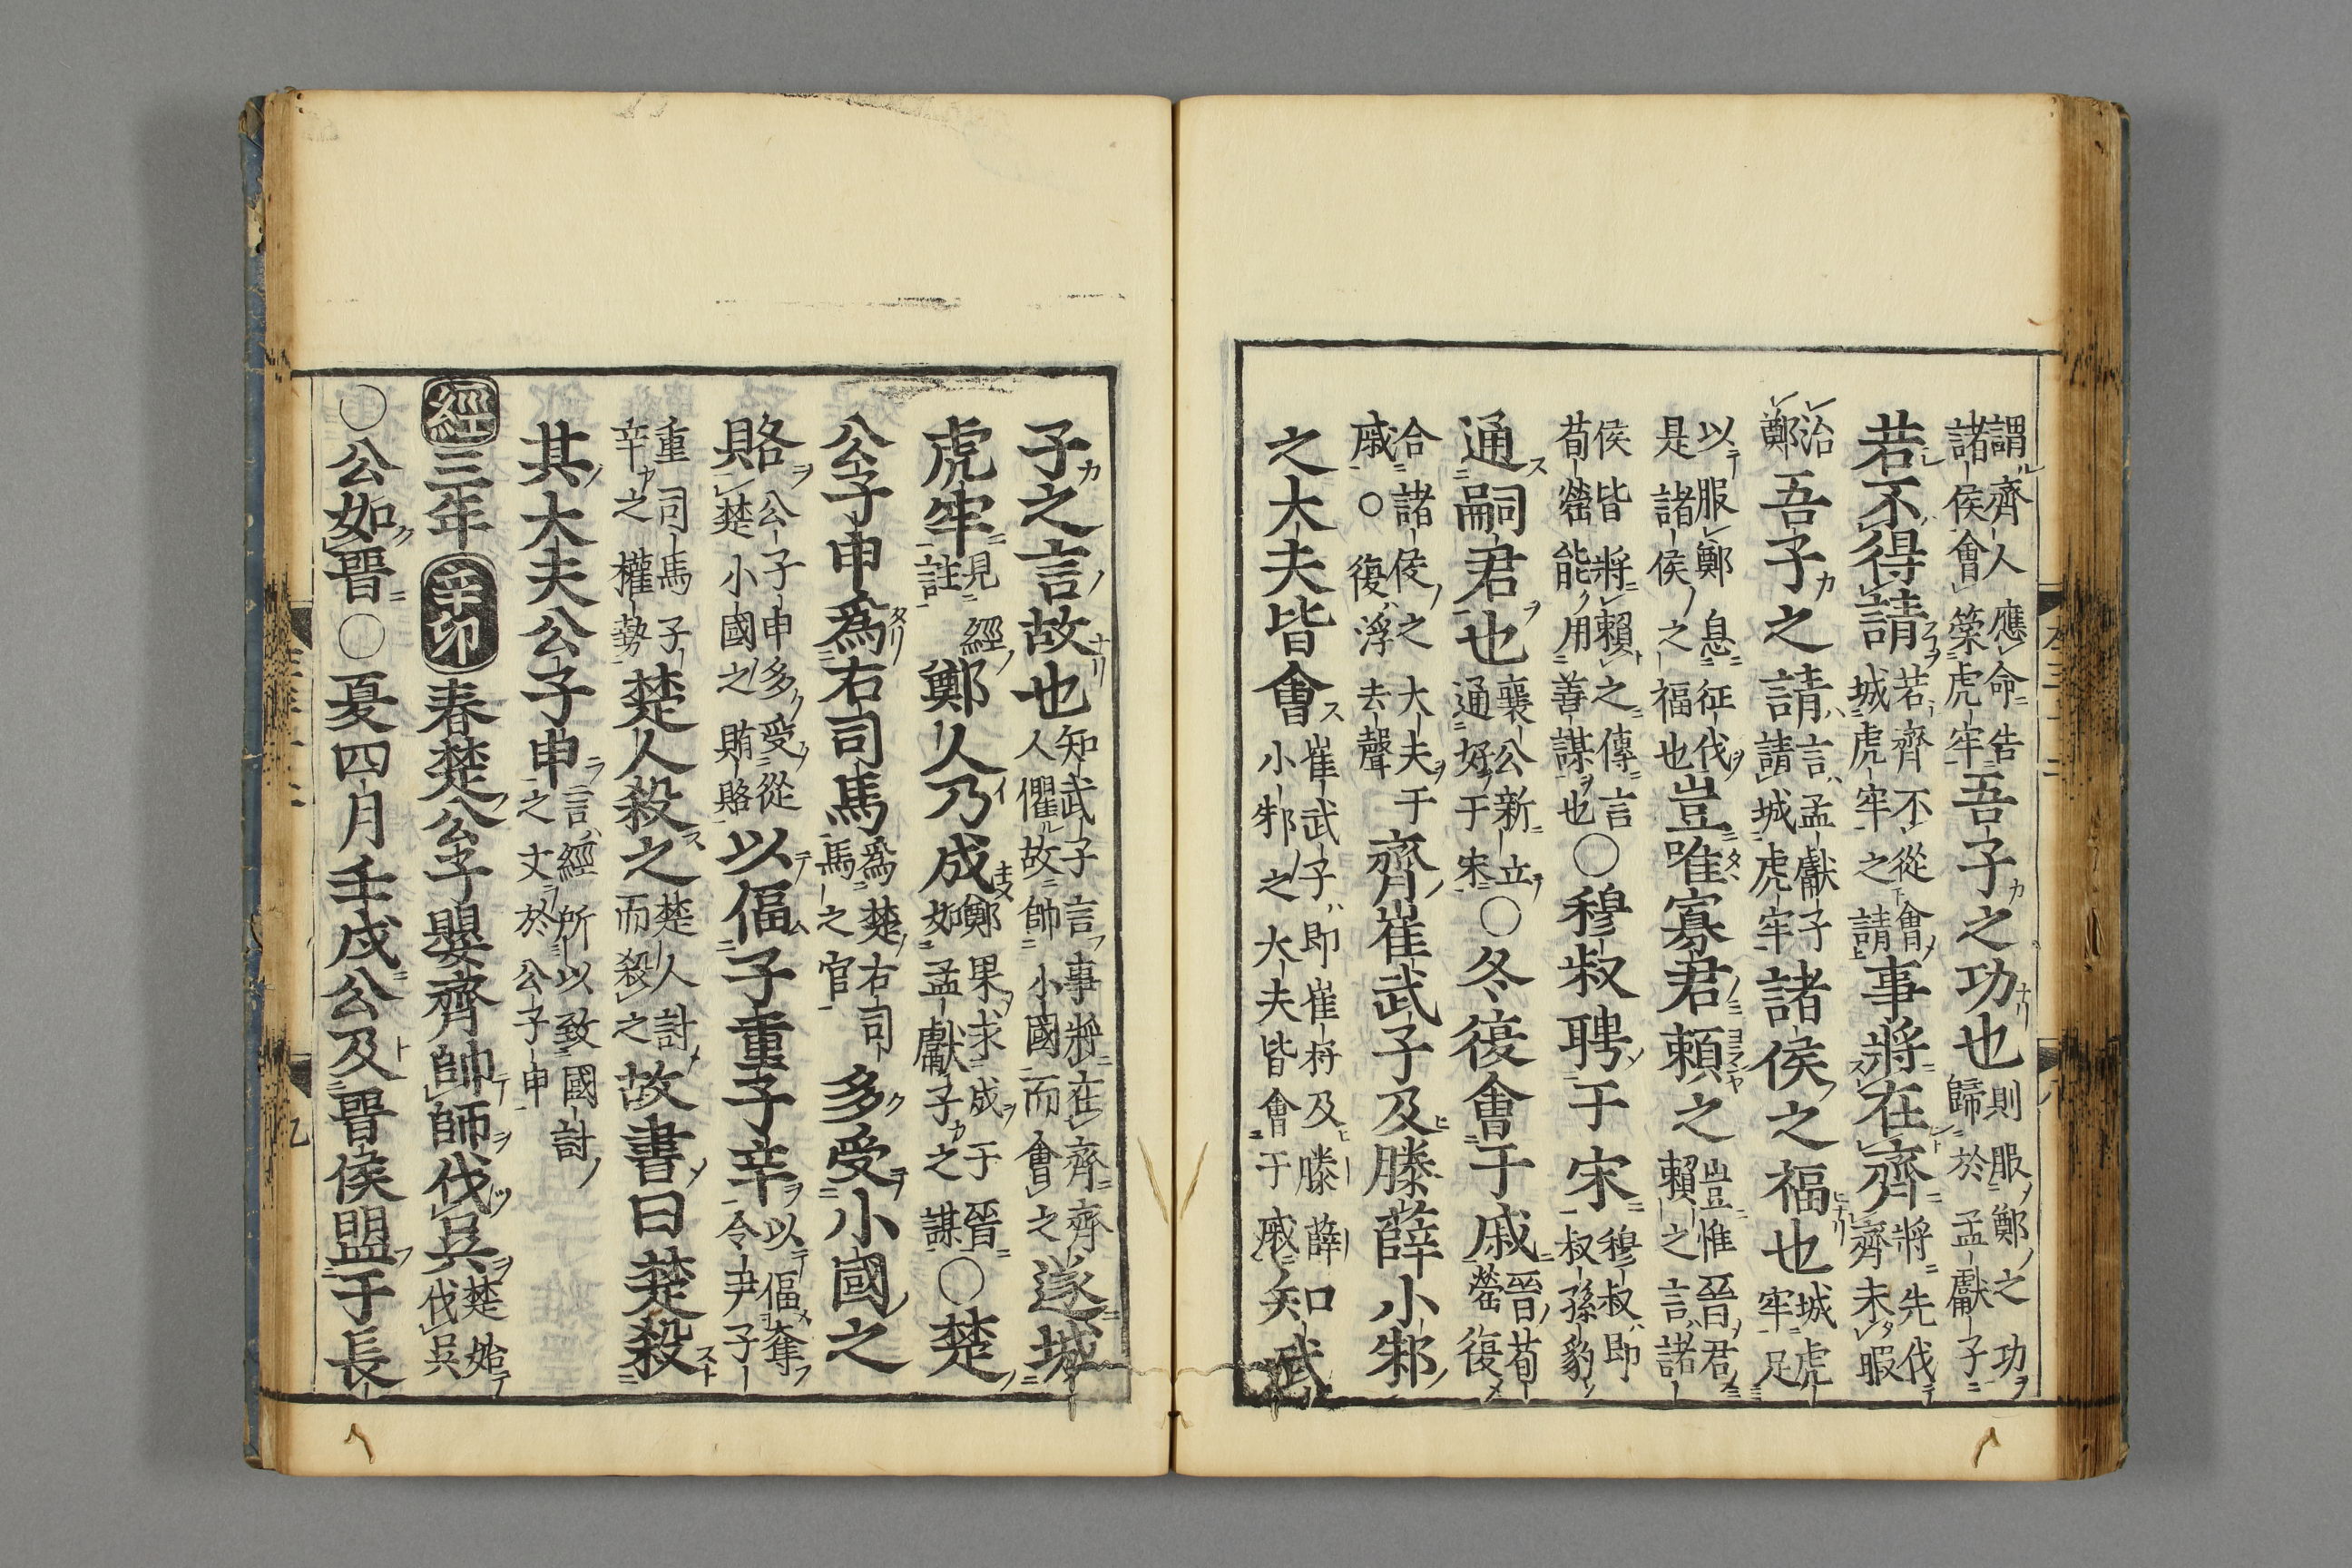 謂齊人應命告諸侯會築虎牢吾子之功也則服鄭之功歸於孟獻子
若不得請若齊不從會城虎牢之請事將在齊將先伐齊未暇
治鄭吾子之請言孟獻子請城虎牢諸侯之福也城虎牢足
以服鄭息征伐是諸侯之福也豈唯寡君賴之豈惟晉君賴之言諸
侯皆將賴之傳言荀罃能用善謀也○穆叔聘于宋穆叔即叔孫豹
通嗣君也襄公新立通好于宋○冬復會于戚晉荀罃復
合諸侯之大夫于戚○復浮去聲齊崔武子及滕薛小邾
之大夫皆會崔武子即崔杼及滕薛小邾之大夫皆會于戚知武
子之言故也知武子言事將在齊齊人懼故帥小國而會之遂城
虎牢見經註鄭人乃成鄭果求成于晉如孟獻子之謀○楚
公子申爲右司馬爲楚右司馬之官多受小國之
賂公子申多受從楚小國之賄賂以偪子重子辛以偪奪令尹子
重司馬子辛之權勢楚人殺之楚人討而殺之故書曰楚殺
其大夫公子申言經所以致國討之文於公子申
經三年辛卯春楚公子嬰齊帥師伐吳楚始伐吳
○公如晉○夏四月壬戌公及晉侯盟于長